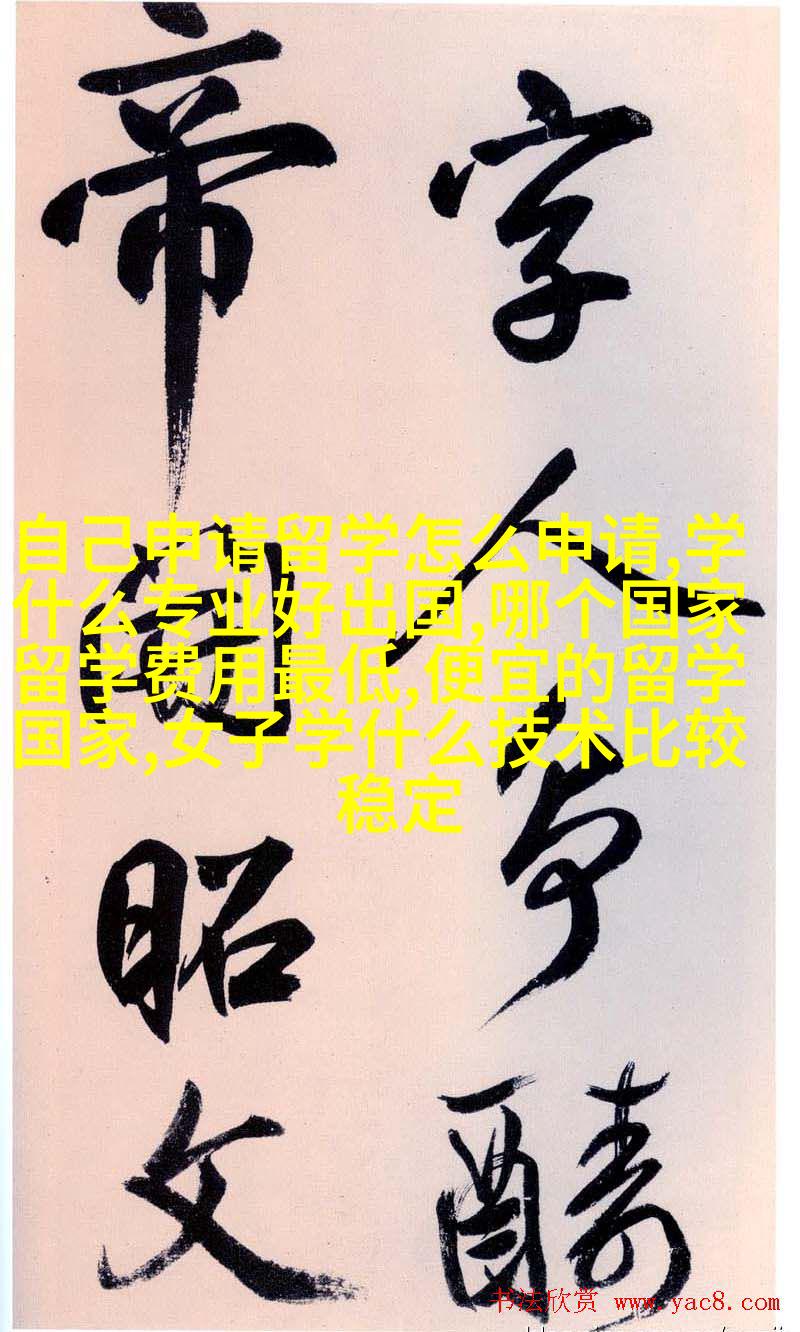 字人争醻
帝昭文
自己申请留学怎么申请,学
什么专业好出国,哪个国家
留学费用最低,便宜的留学
国家,女子学什么技术比较
稳定
书法欣赏 www.yac8.com